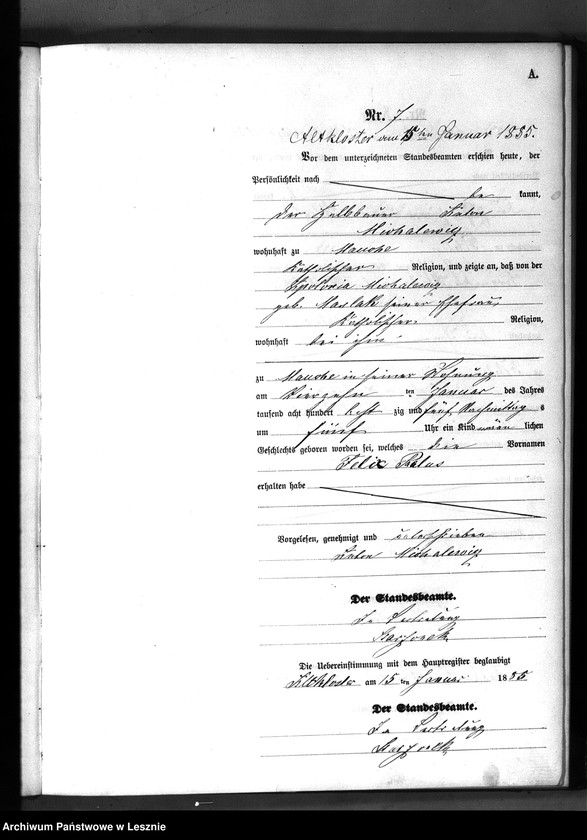 A.
Nr. 7
Altkloster am 15ten Januar 1885.
Vor dem unterzeichneten Standesbeamten erschien heute, der
Persönlichkeit nach
be kannt,
der Halbbauer Anton
Michalewicz
wohnhaft zu Mauche
katholischer Religion, und zeigte an, daß von der
Michalewicz
geb. Maslak seiner Ehefrau,
katholischer Religion,
wohnhaft bei ihm
zu Mauche in seiner Wohnung
am vierzehn ten Januar des Jahres
tausend acht hundert acht zig und fünf Nachmittag s
um fünf Uhr ein Kind männ lichen
Geschlechts geboren worden sei, welches die Vornamen
Felix
erhalten habe
Vorgelesen, genehmigt und unterschrieben
Anton Michalewicz
Der Standesbeamte.
In Vertretung
Die Uebereinstimmung mit dem Hauptregister beglaubigt
Altkloster am 15 ten Januar 1885
Der Standesbeamte.
In Vertretung
Archiwum Państwowe w Lesznie